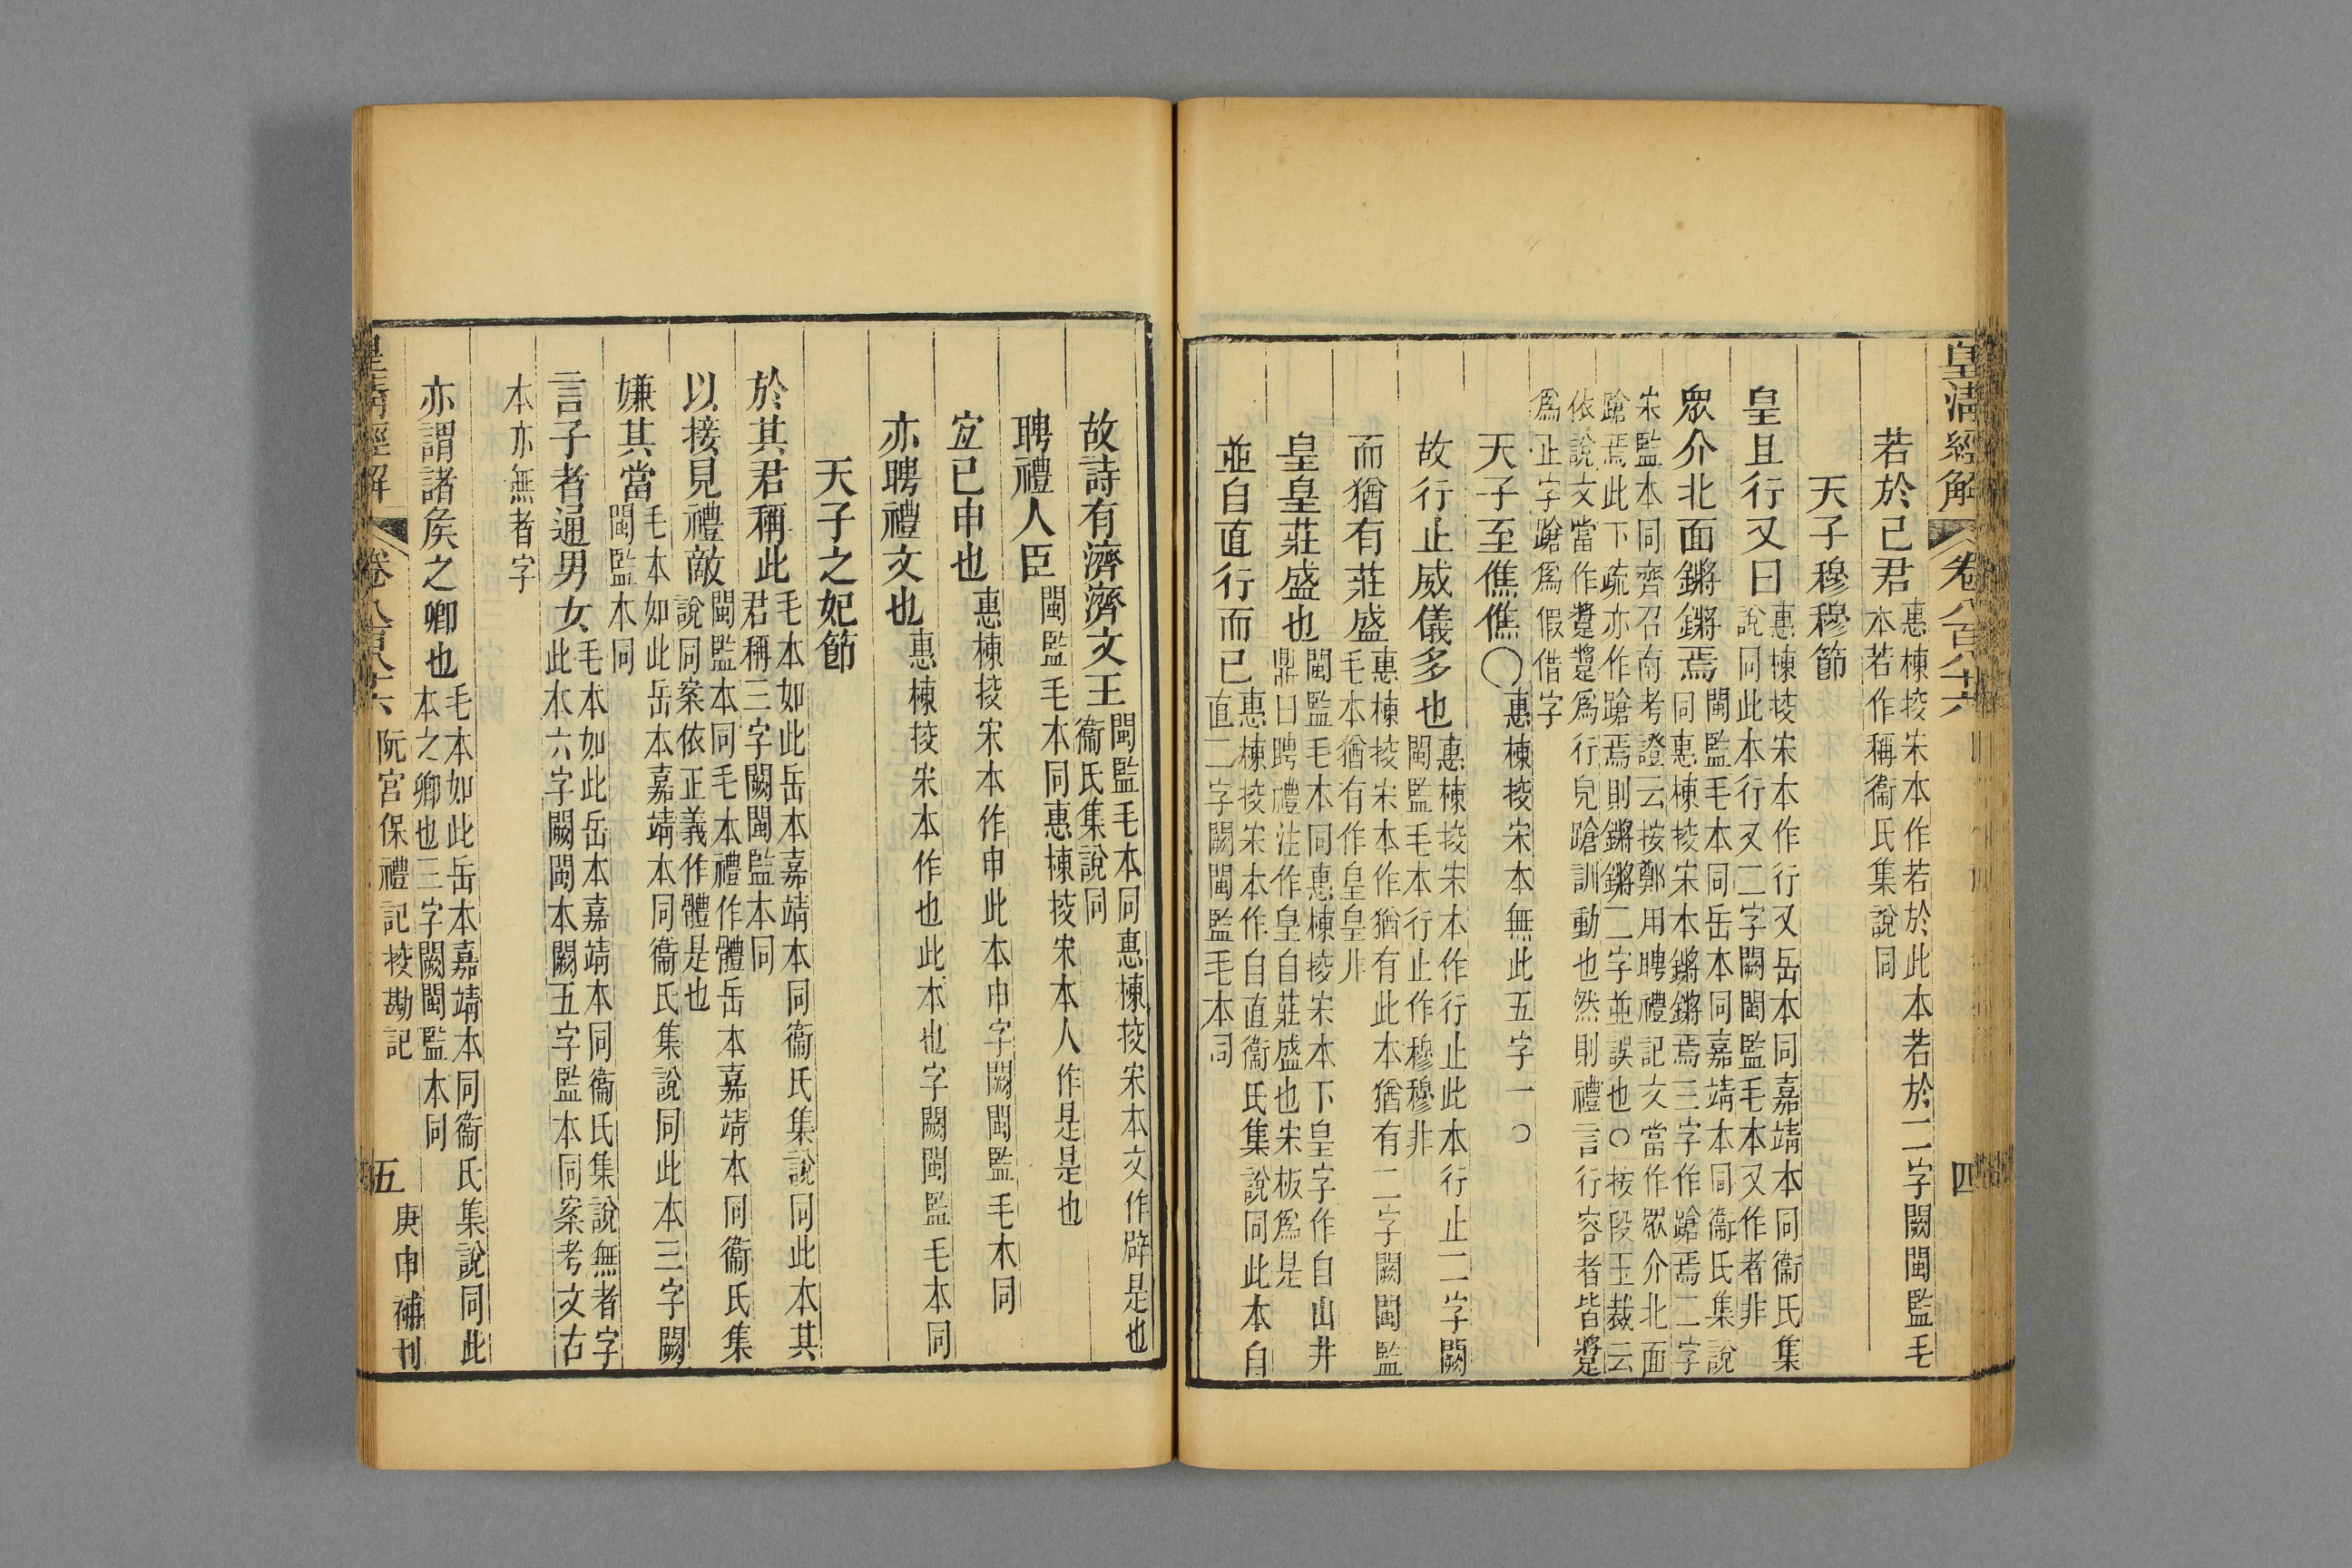 皇清經解 卷八百八十六 四
若於己君惠棟挍宋本作若於此本若於二字闕閩監毛
本若作稱衞氏集說同
天子穆穆節
皇且行又曰惠棟挍宋本作行又岳本同嘉靖本同衞氏集
說同此本行又二字闕閩監毛本又作者非
眾介北面鏘鏘焉閩監毛本同岳本同嘉靖本同衞氏集說
同惠棟挍宋本鏘鏘焉三字作蹌焉二字
宋監本同齊召南考證云按鄭用聘禮記文當作眾介北面
蹌焉此下疏亦作蹌焉則鏘鏘二字並誤也○按段玉裁云
依說文當作蹩蹩爲行皃蹌訓動也然則禮言行容者皆蹩
爲正字蹌爲假借字
天子至僬僬○惠棟挍宋本無此五字一○
故行止威儀多也惠棟挍宋本作行止此本行止二字闕
閩監毛本行止作穆穆非
而猶有莊盛惠棟挍宋本作猶有此本猶有二字闕閩監
毛本猶有作皇皇非
皇皇莊盛也閩監毛本同惠棟挍宋本下皇字作自山井
鼎曰聘禮注作皇自莊盛也宋板爲是
並自直行而已惠棟挍宋本作自直衞氏集說同此本自
直二字闕閩監毛本同
故詩有濟濟文王閩監毛本同惠棟挍宋本文作辟是也
衞氏集說同
聘禮人臣閩監毛本同惠棟挍宋本人作是是也
宐已申也惠棟挍宋本作申此本申字闕閩監毛本同
亦聘禮文也惠棟挍宋本作也此本也字闕閩監毛本同
天子之妃節
於其君稱此毛本如此岳本嘉靖本同衞氏集說同此本其
君稱三字闕閩監本同
以接見禮敵閩監本同毛本禮作體岳本嘉靖本同衞氏集
說同案依正義作體是也
嫌其當毛本如此岳本嘉靖本同衞氏集說同此本三字闕
閩監本同
言子者通男女毛本如此岳本嘉靖本同衞氏集說無者字
此本六字闕閩本闕五字監本同案考文古
本亦無者字
亦謂諸矦之卿也毛本如此岳本嘉靖本同衞氏集說同此
本之卿也三字闕閩監本同
皇清經解 卷八百八十六 阮宮保禮記挍勘記 五 庚申補刊